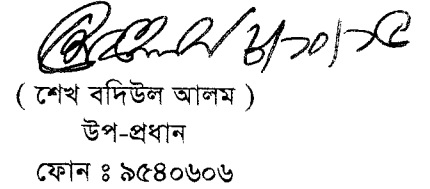 ৮/১০/১৫
( শেখ বদিউল আলম )
উপ-প্রধান
ফোন ঃ ৯৫৪০৬০৬